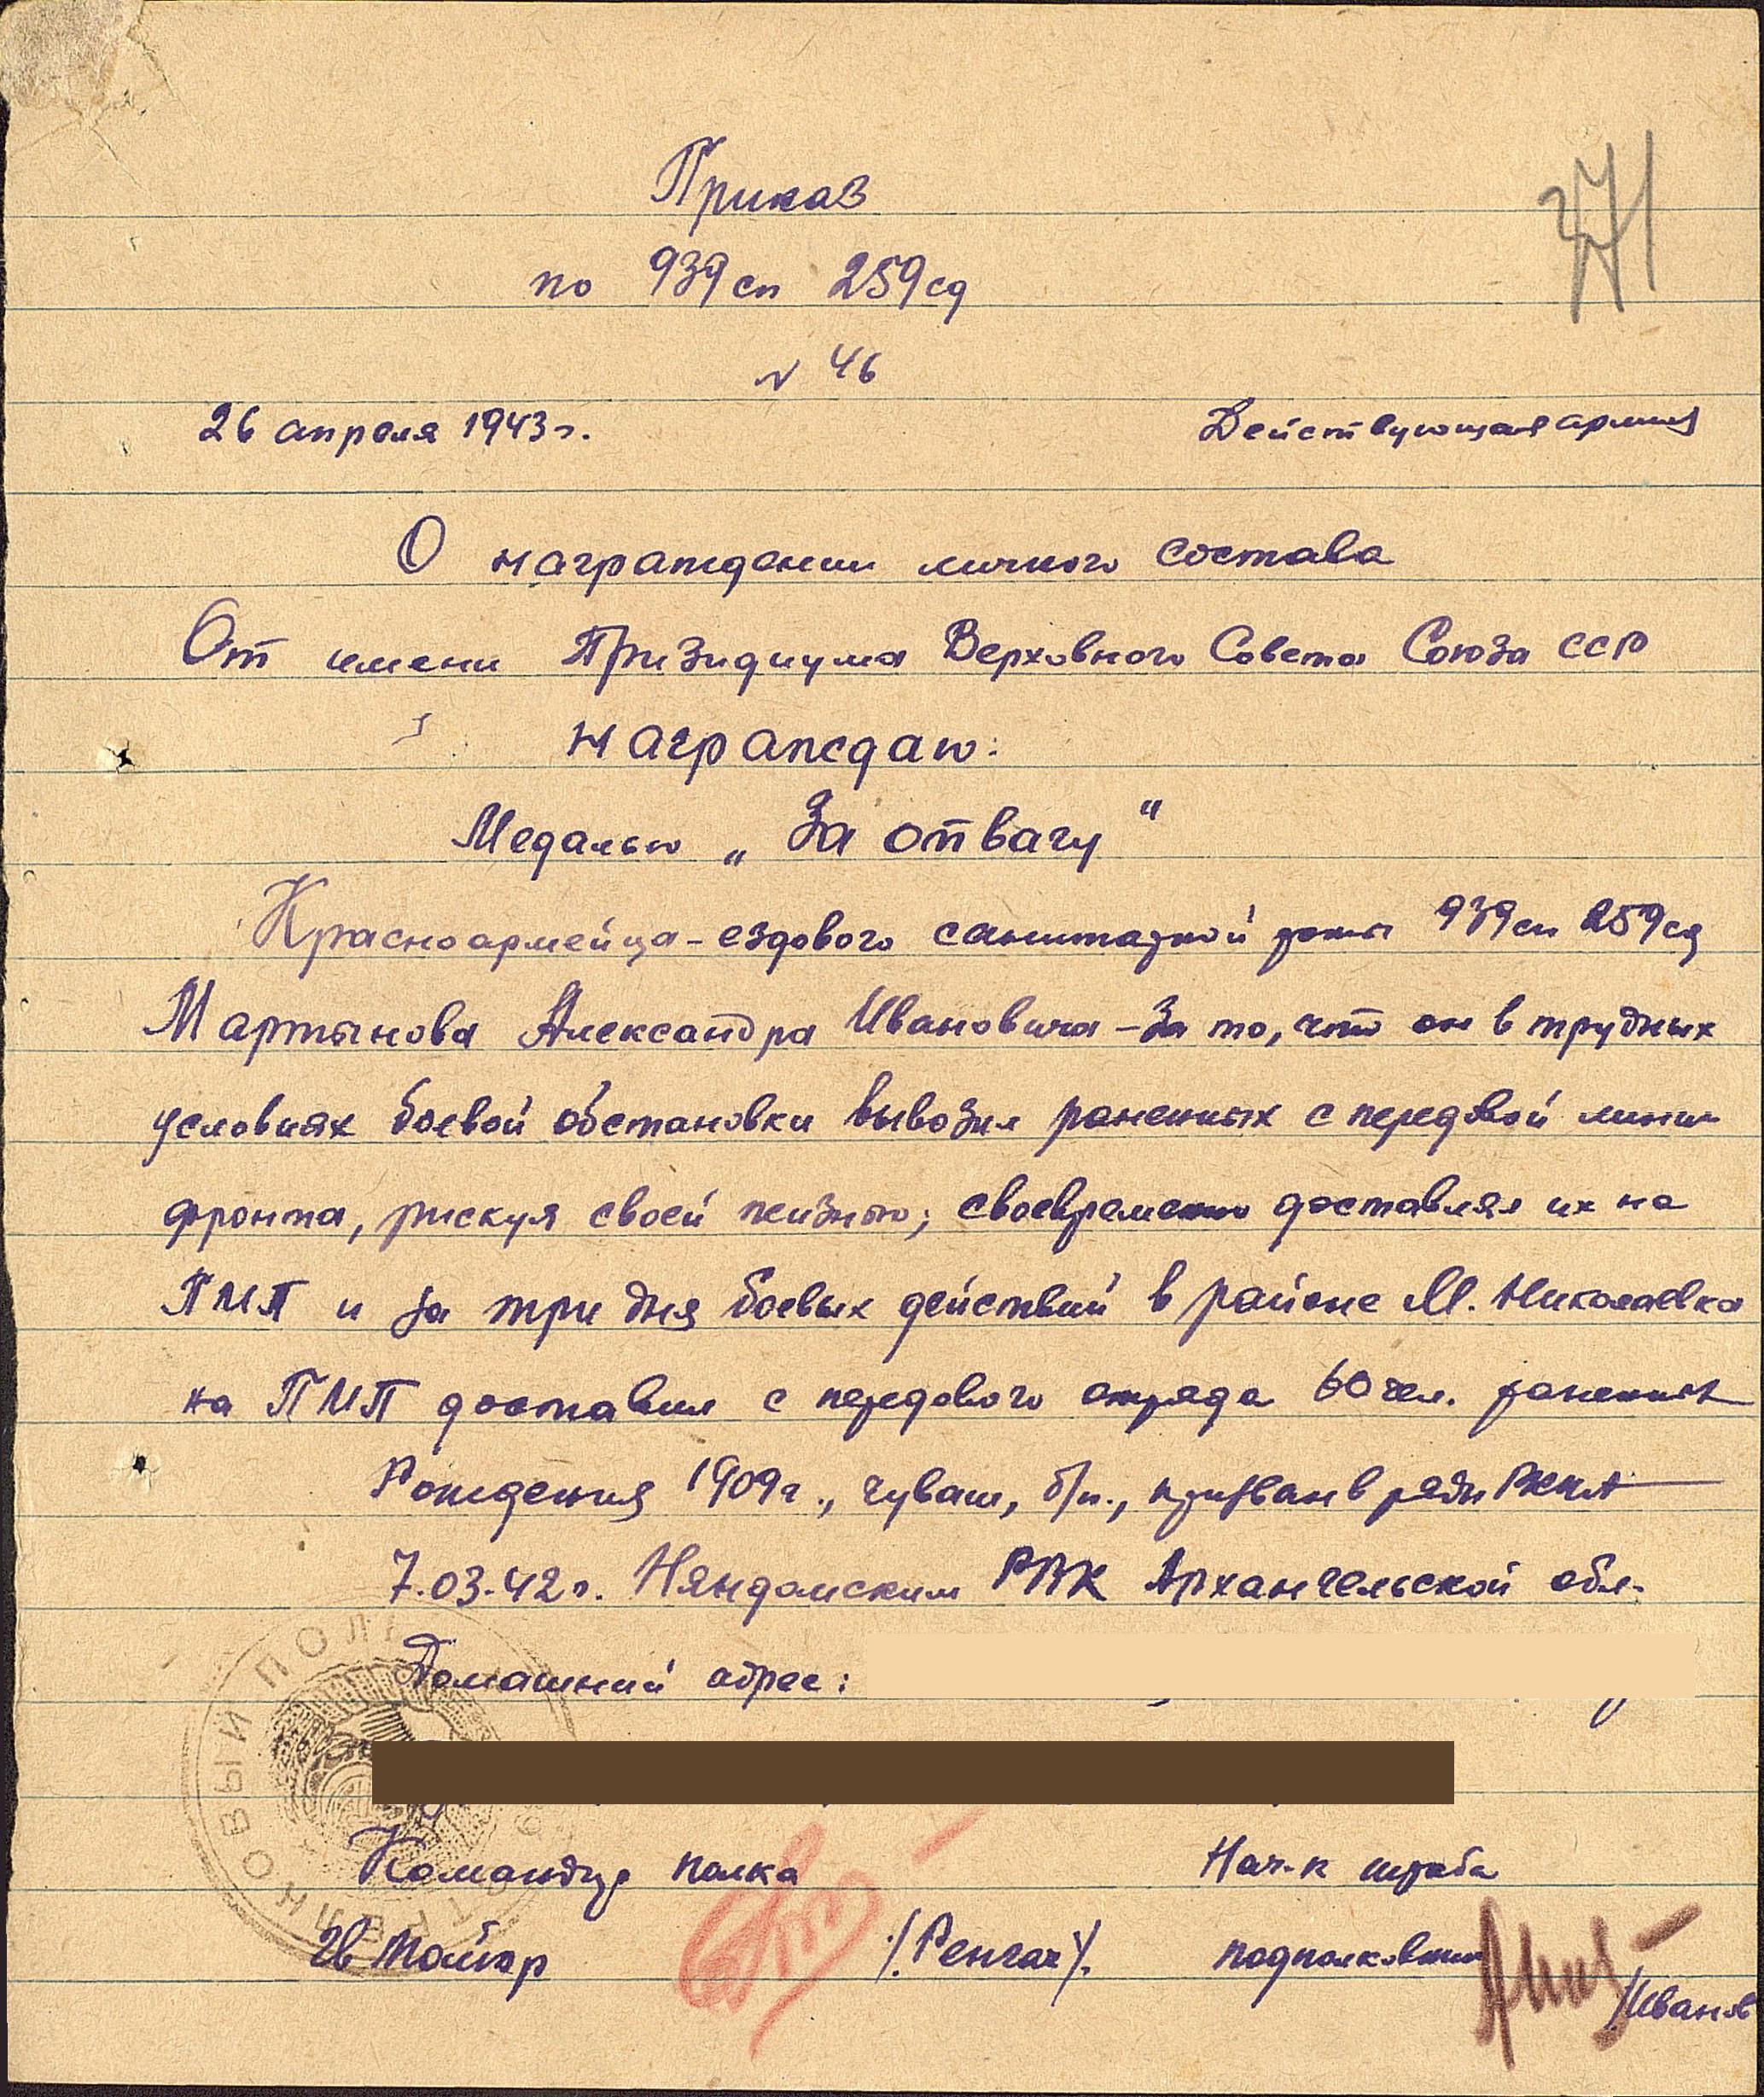 371
Приказ
по 939 сп 259 сд
№ 46
26 апреля 1943 г. Действующая армия
О награждении личного состава
От имени Призидиума Верховного Совета Союза ССР
награждаю:
Медалью „За отвагу“
Красноармейца-ездового санитарной роты 939 сп 259 сд
Мартынова Александра Ивановича – за то, что он в трудных
условиях боевой обстановки вывозил раненных с передовой линии
фронта, рискуя своей жизнью; своевременно доставлял их на
ПМП и за три дня боевых действий в районе М. Николаевка
на ПМП доставил с передового отряда 60 чел. раненных
Рождения 1909 г., чуваш, б/п., призван в ряды РККА
7.03.42 г. Няндомским РВК Архангельской обл.
Домашний адрес:
Командир полка Нач-к штаба
Гв майор /.Ренгач/. подполковник
/Иванов
СТРЕЛКОВЫЙ ПОЛК